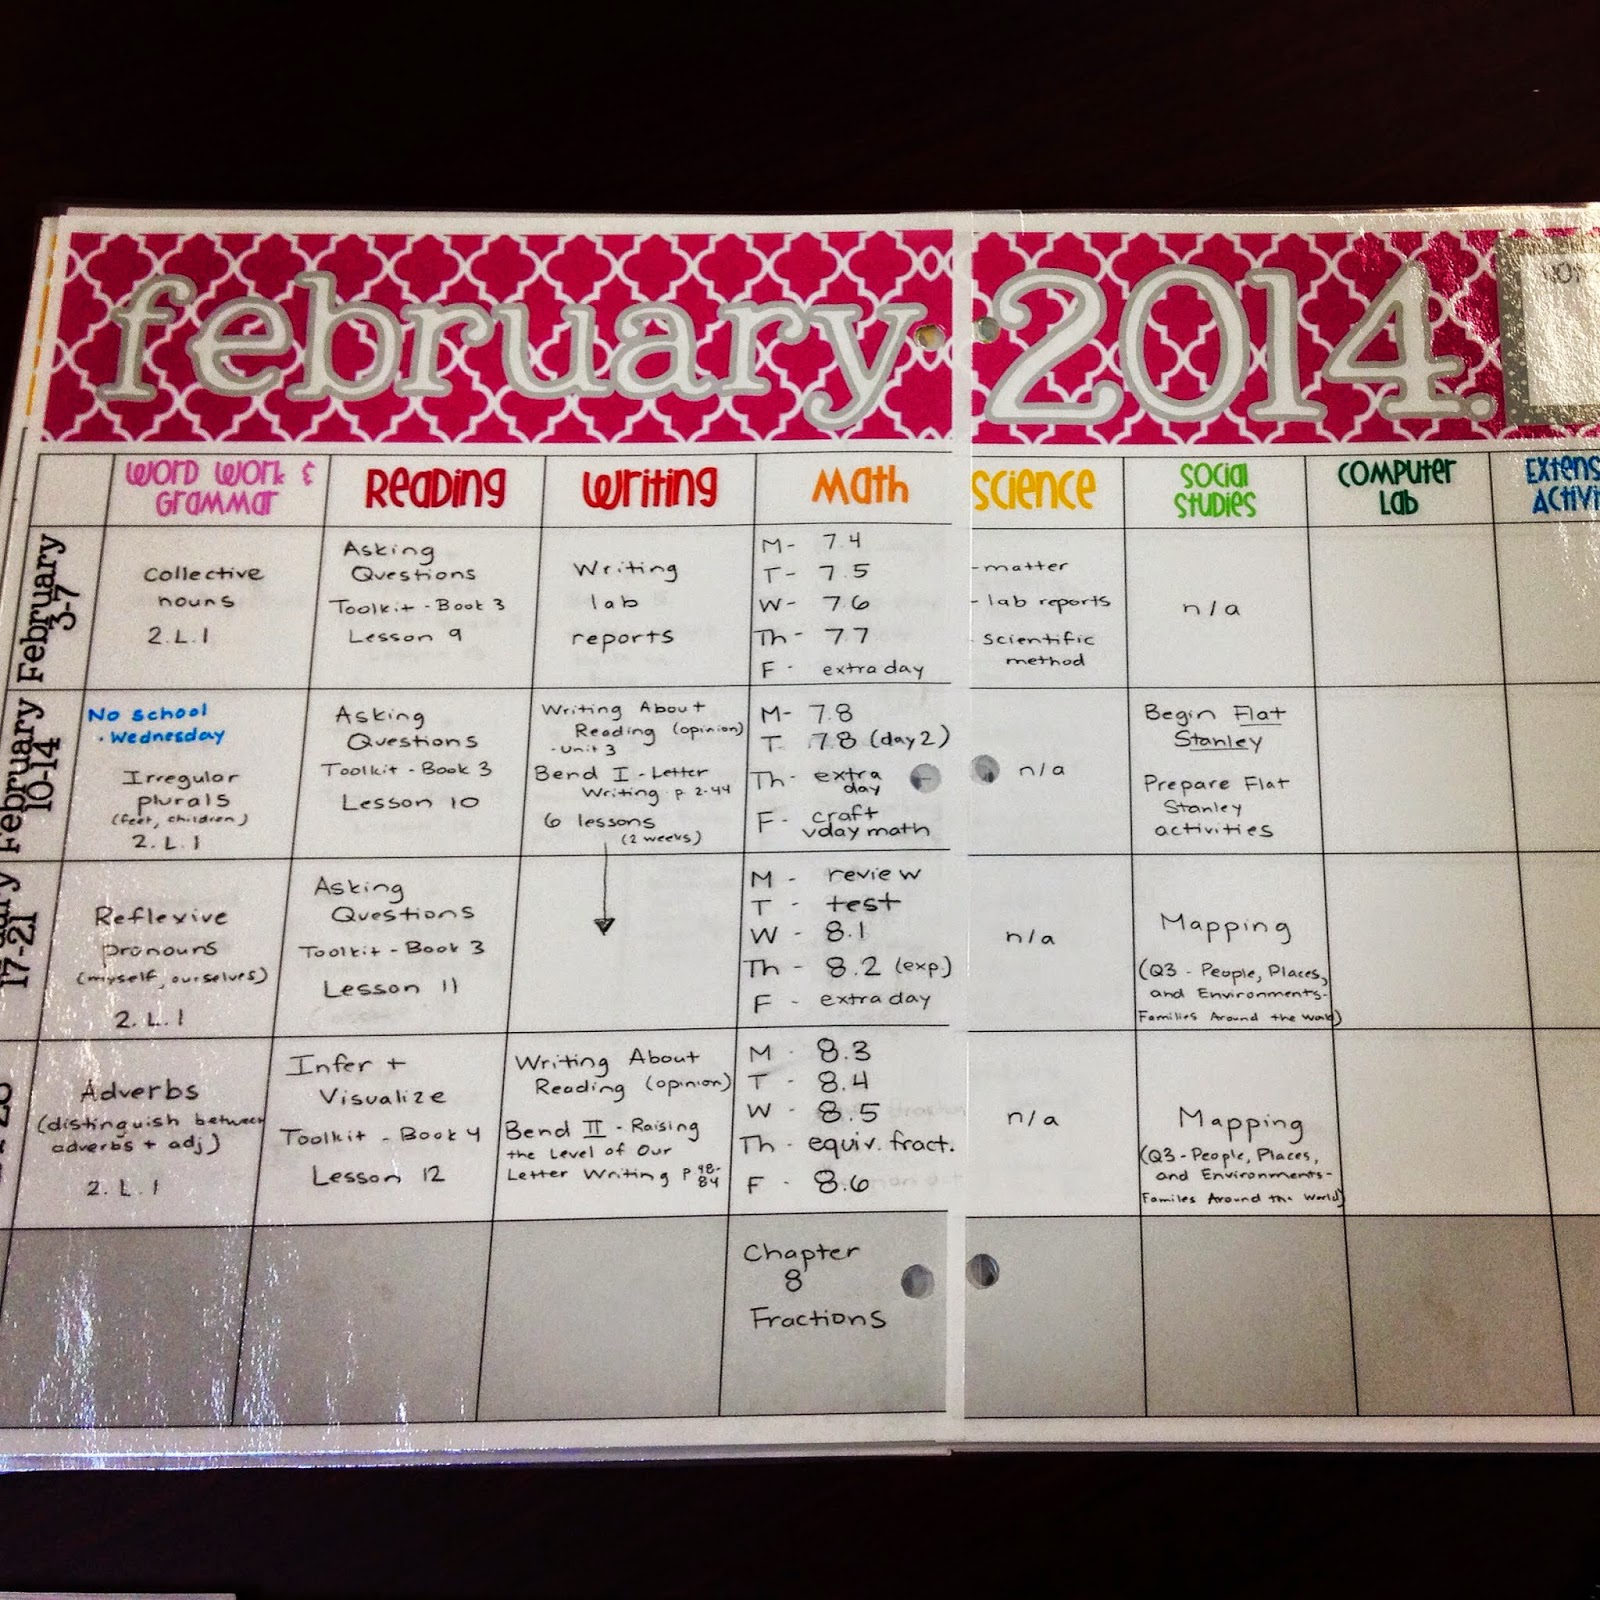 february 2014.
WORD WORK &
GRAMMAR
READING
WRITING
MATH
SCIENCE
SOCIAL
STUDIES
COMPUTER
LAB
February
3-7
Collective
nouns
2.L.1
Asking
Questions
Toolkit - Book 3
Lesson 9
Writing
lab
reports
M- 7.4
T- 7.5
W- 7.6
Th- 7.7
F- extra day
- matter
- lab reports
- scientific
method
n/a
February
10-14
No school
. Wednesday
Irregular
plurals
(feet, children)
2.L.1
Asking
Questions
Toolkit - Book 3
Lesson 10
Writing About
Reading (opinion)
- Unit 3
Bend I - Letter
Writing p. 2-44
6 lessons
(2 weeks)
M- 7.8
T. 7.8 (day 2)
Th- extra
day
F- craft
vday math
n/a
Begin Flat
Stanley
Prepare Flat
Stanley
activities
17-21
Reflexive
pronouns
(myself, ourselves)
2.L.1
Asking
Questions
Toolkit - Book 3
Lesson 11
M - review
T - test
W - 8.1
Th - 8.2 (exp.)
F - extra day
n/a
Mapping
(Q3 - People, Places,
and Environments-
Families Around the World)
Adverbs
(distinguish between
adverbs + adj)
2.L.1
Infer +
Visualize
Toolkit - Book 4
Lesson 12
Writing About
Reading (opinion)
Bend II - Raising
the Level of Our
Letter Writing p. 48-
84
M - 8.3
T - 8.4
W - 8.5
Th - equiv. fract.
F - 8.6
n/a
Mapping
(Q3 - People, Places,
and Environments-
Familes Around the World)
Chapter
8
Fractions